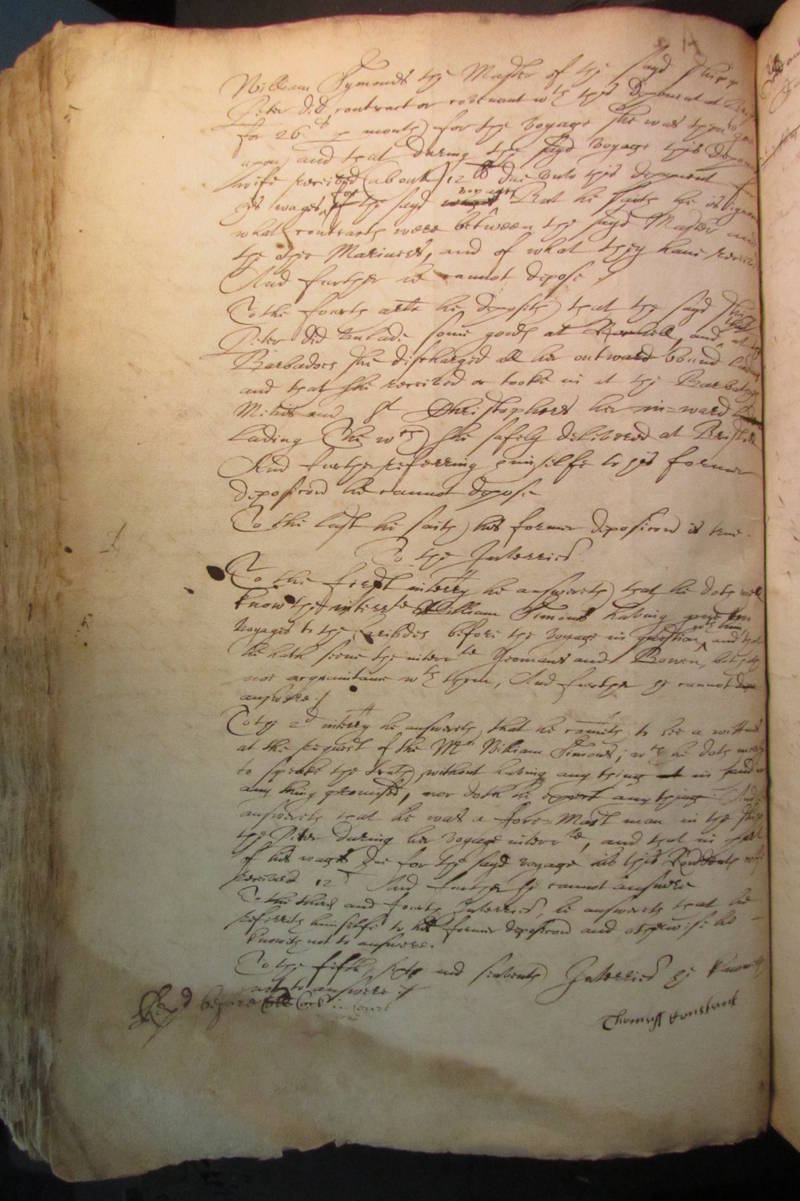 William Symonds the Master of the sayd shipp
Peter did contract or covenant wth this deponent at
for 26 s per moneth for the voyage she was then
upon and that during the sayd voyage this deponents
wife received (about) 12 li due unto this deponent for
his wages for the sayd voyage But he saith he is ignorant
what contracts were betweene the sayd Master and
the other Mariners, and of what they have received
And further he cannot depose /
To the fourth arle he deposeth that the sayd shipp
Peter did unlade some goods at and at the
Barbadoes she discharged all her outward bound lading
and that she received or tooke in at the Barbadoes
Mevis and St Christophers her in=ward
lading (the wch) she safely delivered at Bristoll
And further referring himselfe to his former
deposicon he cannot depose
To the last he saith his former deposicon is true.
To the Interries
To the first interry he answereth that he doth well
know the interrte William Simonds having gone two
voyages to the before the voyage in question, with him and that
he hath seene the interrte Yeomans and Bowen, but hath
not acquaintance wth them, And further he cannot
answere /
To the 2d interry he answereth, that he cometh to bee a wittnes
at the request of the Mr William Simonds; wch he doth meerly
to speake the truth without having any thing in hand or
any thing promised, nor doth he expect any thing And
answereth that he was a fore-Mast man in the shipp
the Peter during her voyage interrte, and that in part
of his wages due for the sayd voyage his this Rendents wife
received 12 li And further he cannot answere
To the third and fourth Interries, he answereth that he
referreth himselfe to his former deposicon and otherwise he
knoweth not to answere.
To the fifth, sixth and seaventh Interries he knoweth
not to answere /
before
Thomas Constant